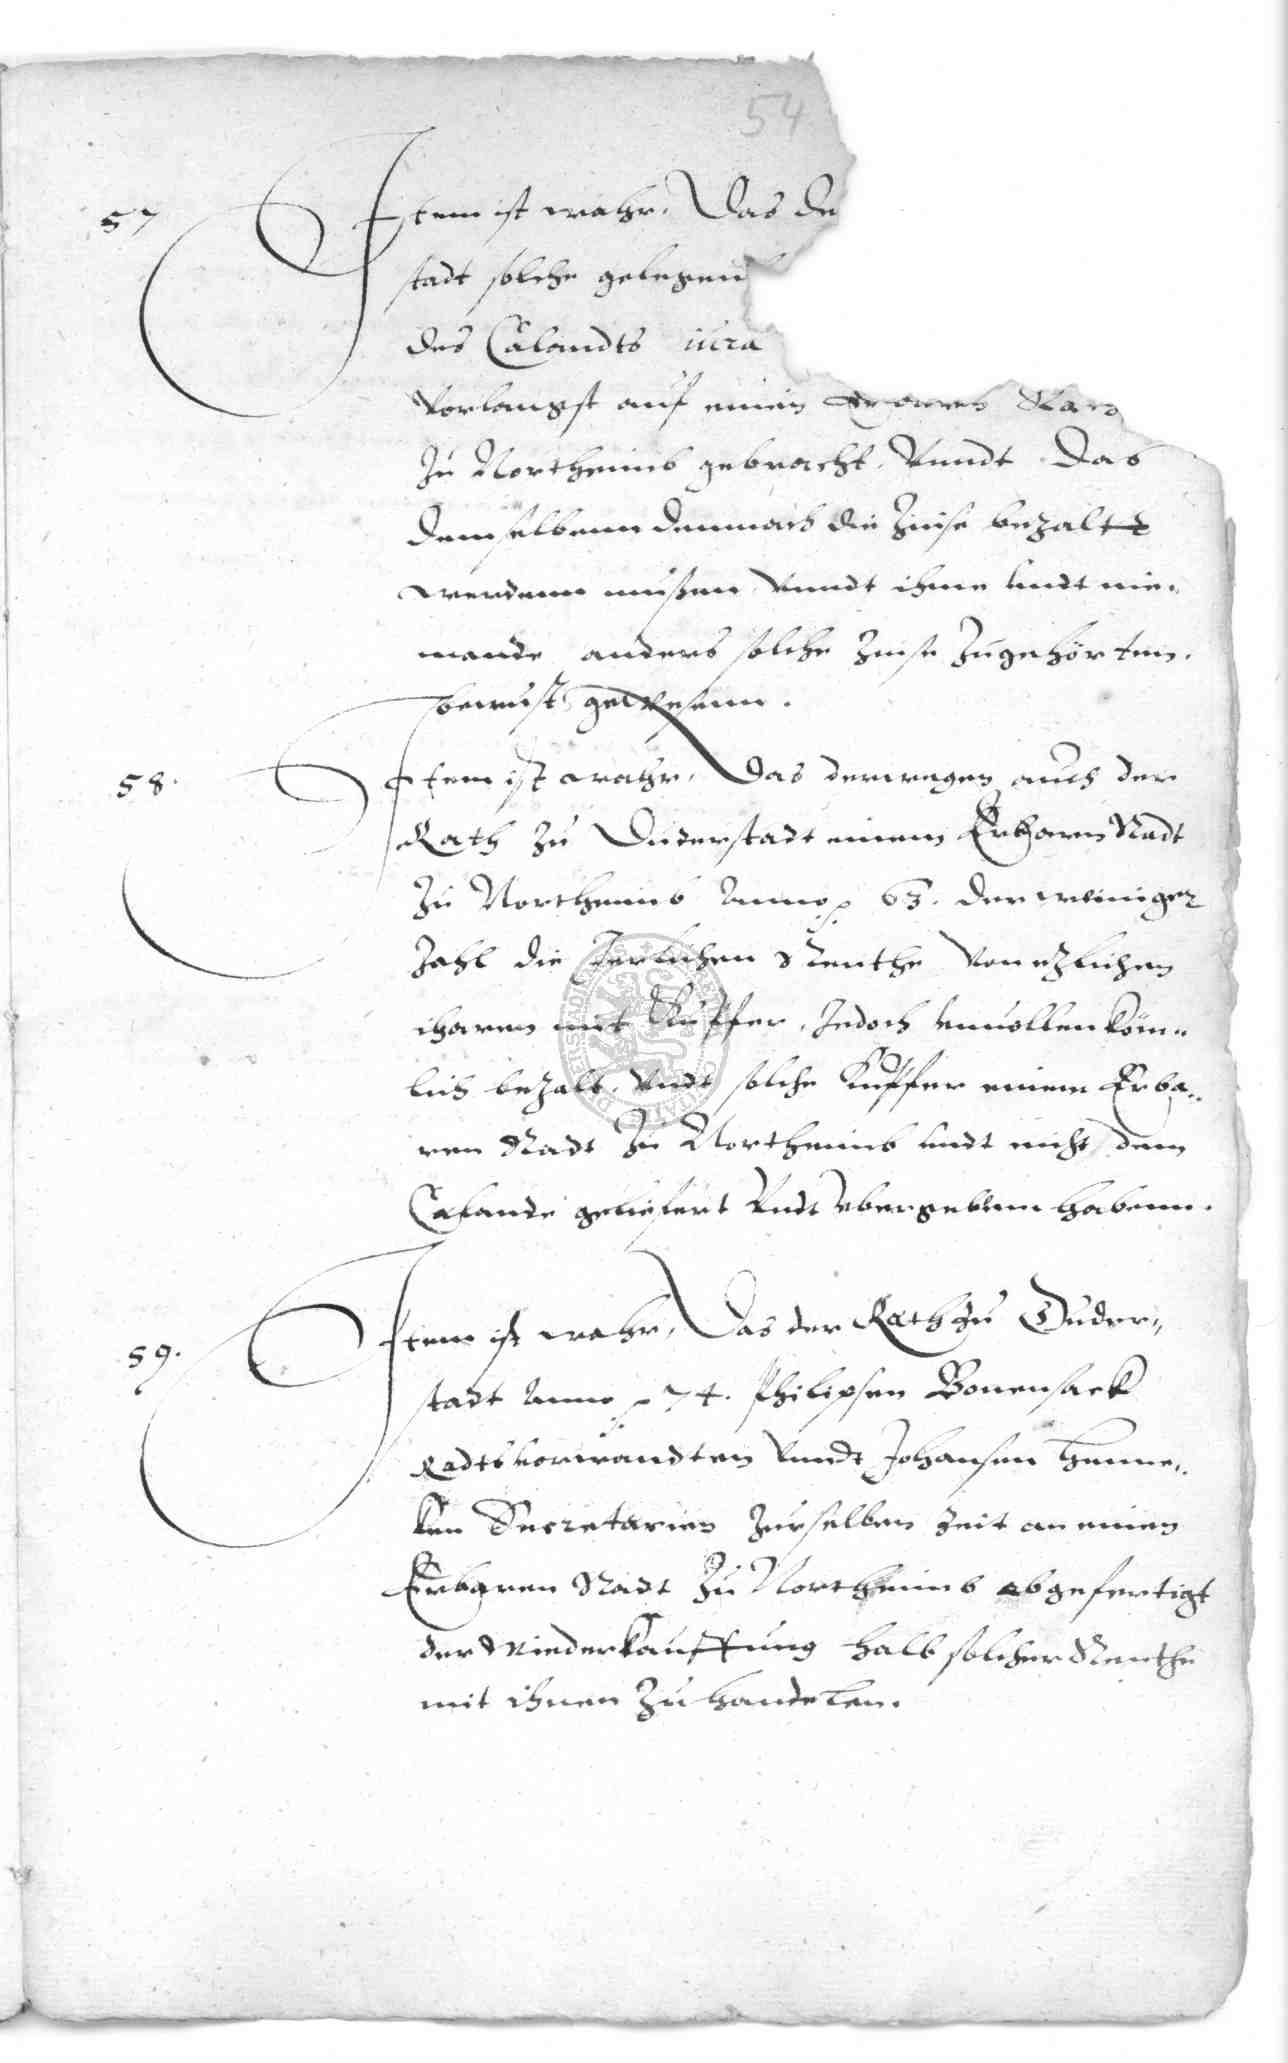 54
57 Item ist wahr, Das de
stadt solche gelegen
des Calandts iura
vorlangst auf einen Erbaren Rad
zu Northeimb gebracht, Vnndt Das
demselbenn dennach die Zinse bezaltt
werdenn mußen, vnndt ihme vndt nie-
mande anders solche Zinse Zugehörten,
bewust gewesenn.
58. Item ist wahr, Das derwegen auch der
Rath zu Duderstadt einem Erbarn Radt
zu Northeimb Anno p 63. der weiniger
Zahl die Jerlichen Renthe von ezlichen
iharen mit Kupffer, Jedoch vnuollenköm-
lich bezalt, Vndt solche Kupffer einem Erba-
ren Radt zu Northeimb vndt nicht dem
Calande geliefert Vndt vbergebenn habenn.
59. Item ist wahr, Das der Rath zu Duder-
stadt Anno p 74. Philipsen Bonensack
Radtsvorwandten vnndt Johansen Henne-
ken Secretarien zurselben Zeit an einen
Erbaren Radt zu Northeimb abgefertigt
der Wiederkauffung halb solcher Renthe
mit ihnen zu handelen.